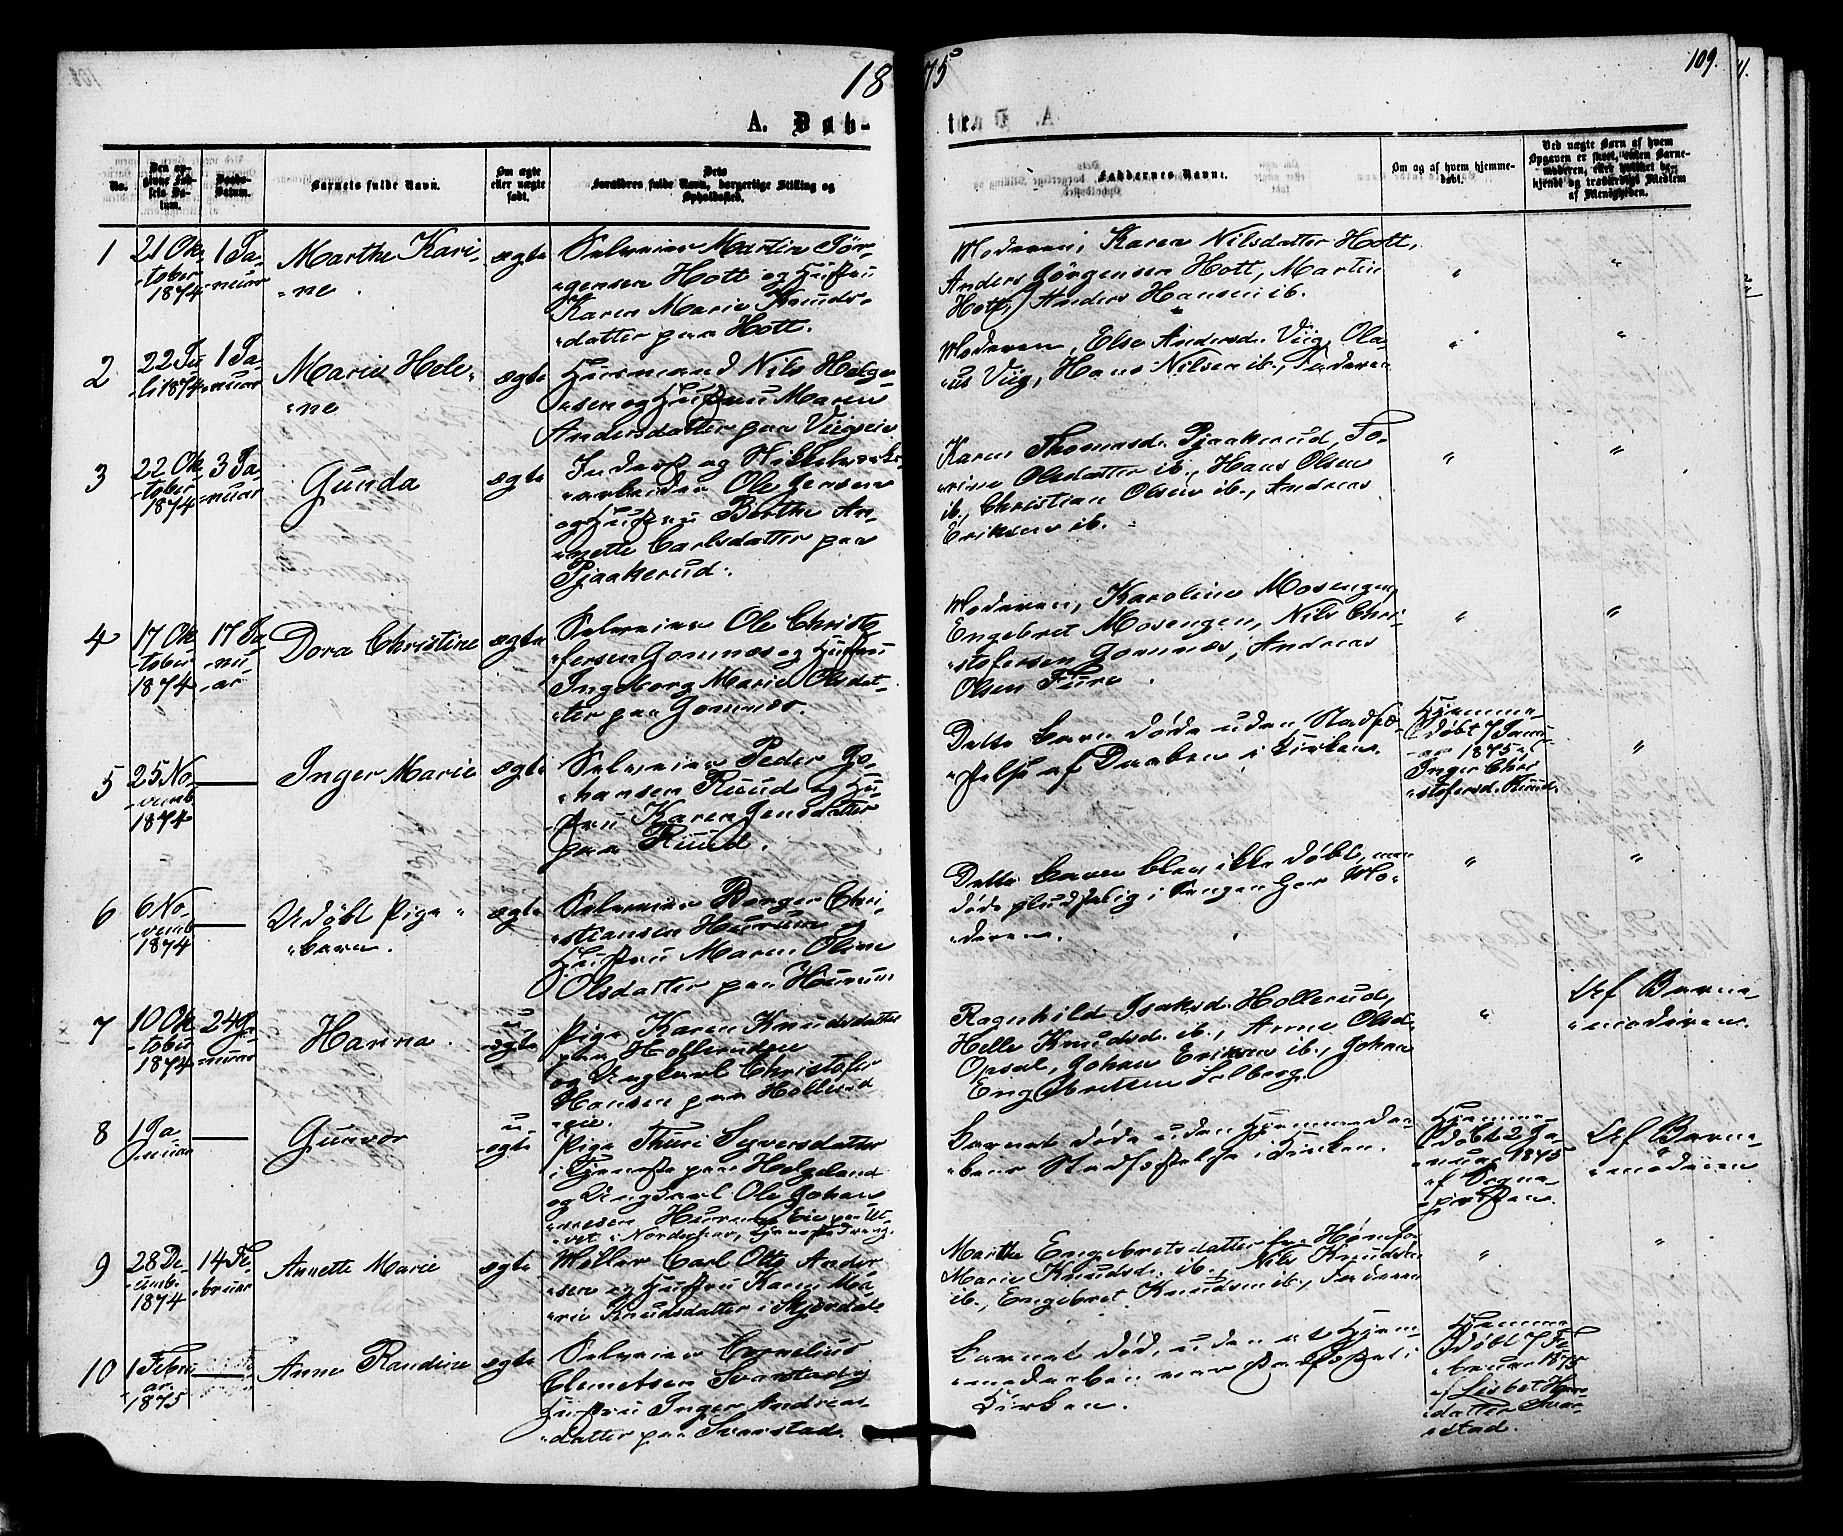 1875
109.
A. Døbte.
No.
Den opgivne Fødsels Datum.
Daabs-Datum.
Barnets fulde Navn.
Om ægte eller uægte født.
Dets Forældres fulde Navn, borgerlige Stilling og Opholdssted.
Faddernes Navne.
Om og af hvem hjemmedøbt.
Ved uægte Børn af hvem Opgaven er skeet, enten Barnemoderen, eller hvilket bekjendt og troværdigt Medlem af Menigheden.
1
21 Oktober 1874
1 Januar
Marthe Karine.
ægte
Selveier Martin Jør-
gensen Hott og Hustru
Karen Marie Knuds-
datter paa Hott.
Moderen, Karen Nilsdatter Hott,
Anders Jörgensen Hott, Martin
Hott, Anders Hansen ib.
"
"
2
22 Juli 1874
1 Januar
Marie Helene
ægte
Huusmand Nils Helge-
sen og Hustru Maren
Andersdatter paa Viigseie
Moderen, Else Andersd. Viig, Ola-
us Viig, Hans Nilsen ib., Faderen
"
"
3
22 Oktober 1874
3 Januar
Gunda
ægte
Inderst og Nikkelværks-
arbeider Ole Jensen
og Hustru Berthe An-
nette Carlsdatter paa
Pjaakerud.
Karen Thomasd. Pjaakerud, To-
rine Olsdatter ib., Hans Olsen
ib., Christian Olsen ib., Andreas
Eriksen ib.
"
"
4
17 Oktober 1874
17 Januar
Dora Christine
ægte
Selveier Ole Christo-
fersen Gomnæs og Hustru
Ingeborg Marie Olsdat-
ter paa Gomnæs.
Moderen, Karoline Mosengen,
Engebret Mosengen, Nils Chri-
stofersen Gomnæs, Andreas
Olsen Fure.
"
"
5
25 Novemb 1874
Inger Marie
ægte
Selveier Peder Jo-
hansen Ruud og Hu-
stru Karen Jensdatter
paa Ruud.
Dette Barn døde uden Stadfæ-
stelse af Daaben i Kirken.
Hjemme-
døbt 7 Janu-
ar 1875 af
Inger Chri-
stofersd. Ruud.
"
6
6 Novemb 1874
Udöbt Pige-
barn.
ægte
Selveier Borger Chri-
stiansen Hurum og
Hustru Maren Oline
Olsdatter paa Hurum
Dette Barn blev ikke døbt, men
døde pludselig i Sengen hos Mo-
deren.
"
"
7
10 Oktober 1874
24 Januar
Hanna.
u-
ægte
Pige Karen Knudsdatter
paa Hollerudeie
og Ungkarl Christofer
Hansen paa Hollerud-
eie.
Ragnhild Isaksd. Hollerud,
Helle Knudsd. ib., Anne Olsd.
Opsal, Johan Eriksen ib., Johan
Engebretsen Solberg.
"
Af Barne-
moderen.
8
1 Januar
Gunvor
u-
ægte
Pige Thuri Syversdatter
i Tjeneste paa Helgeland
og Ungkarl Ole Johan-
nesen Hurum Eie paa
i Norderhov,
Barnet døde uden Hjemmedaa-
bens Stadfæstelse i Kirken.
Hjemme-
døbt 2 Ja-
nuar 1875
af Sogne-
presten.
Af Barne-
moderen
9
28 Decemb. 1874
14 Februar
Annette Marie
ægte
Möller Carl Otto Ander-
sen og Hustru Karen Ma-
rie Knudsdatter i Skjördal
Marthe Engebretsdatter fra Hønefos
Marie Knudsd. ib., Nils Knudsen
ib., Engebret Knudsen ib., Faderen
"
"
10
1 Februar 1875
Anne Randine
ægte
Selveier Cornelius
Clemetsen Svarstad og
Hustru Inger Andreas-
datter paa Svarstad.
Barnet døde, uden at Hjem-
medaaben var stadfæstet i
Kirken.
Hjemme-
døbt 7 Fe-
bruar 1875
af Lisbet
datter Svar-
stad.